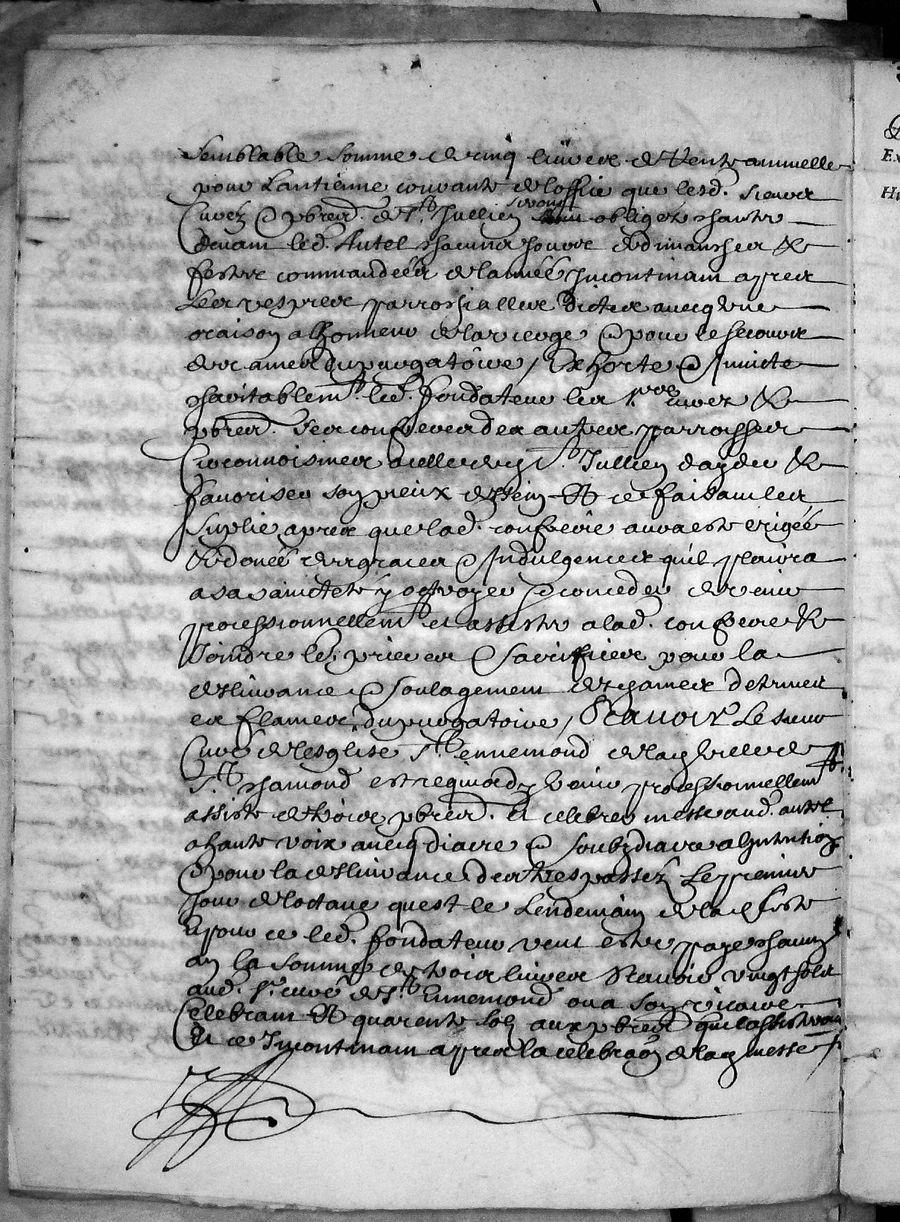 semblable somme de cinq livres de rente annuelle
pour lantienne couvante de loffice que lesd. sieurs
Curez & pbres. de St. Jullien seront obligés chanter
devant led. Autel chacuns jours de dimanches &
festes commandées de lannée Incontinant apres
Les vespres parrochialles dictes avecq une
oraison a lhonneur de la vierge & pour le secours
des ames du purgatoire, Exhorte & Invite
charitablemt. led. fondateur les srs. Curez &
pbres. des confreries des autres parroisses
Circonvoisines a celle dud. St. Jullien daydes &
favoriser son pieux dessein Et ce faisant les
suplie apres que lad. confrerie aura esté erigée
& donée des graces & Indulgences quil plaira
a sa saincteté y octroyer & conceder de venir
processionnellemt. et assister a lad. confrerie &
Joindre les prieres & sacriffices pour la
deslivrance & soulagement desd. ames detenues
es flames du purgatoire, Scavoir Le sieur
Curé de lesglise St. ennemond de lad. ville de
St. chamond est requis dy venir processionnellemt.
assisté de trois pbres. Et celebrer messe aud. autel
a haute voix avecq diacre & soubzdiacre a lintention
& pour la deslivrance des trespassez Le premier
jour de loctave quest le Lendemain de lad. feste
Et pour ce led. fondateur veut estre payé chacun
an la somme de trois livres scavoir vingt solz
aud. sr. curé de St. Ennemond ou a son vicaire
Celebrant Et quarente solz aux pbres. qui lassisteront
Et ce Incontinant apres la celebraon de lad. messe